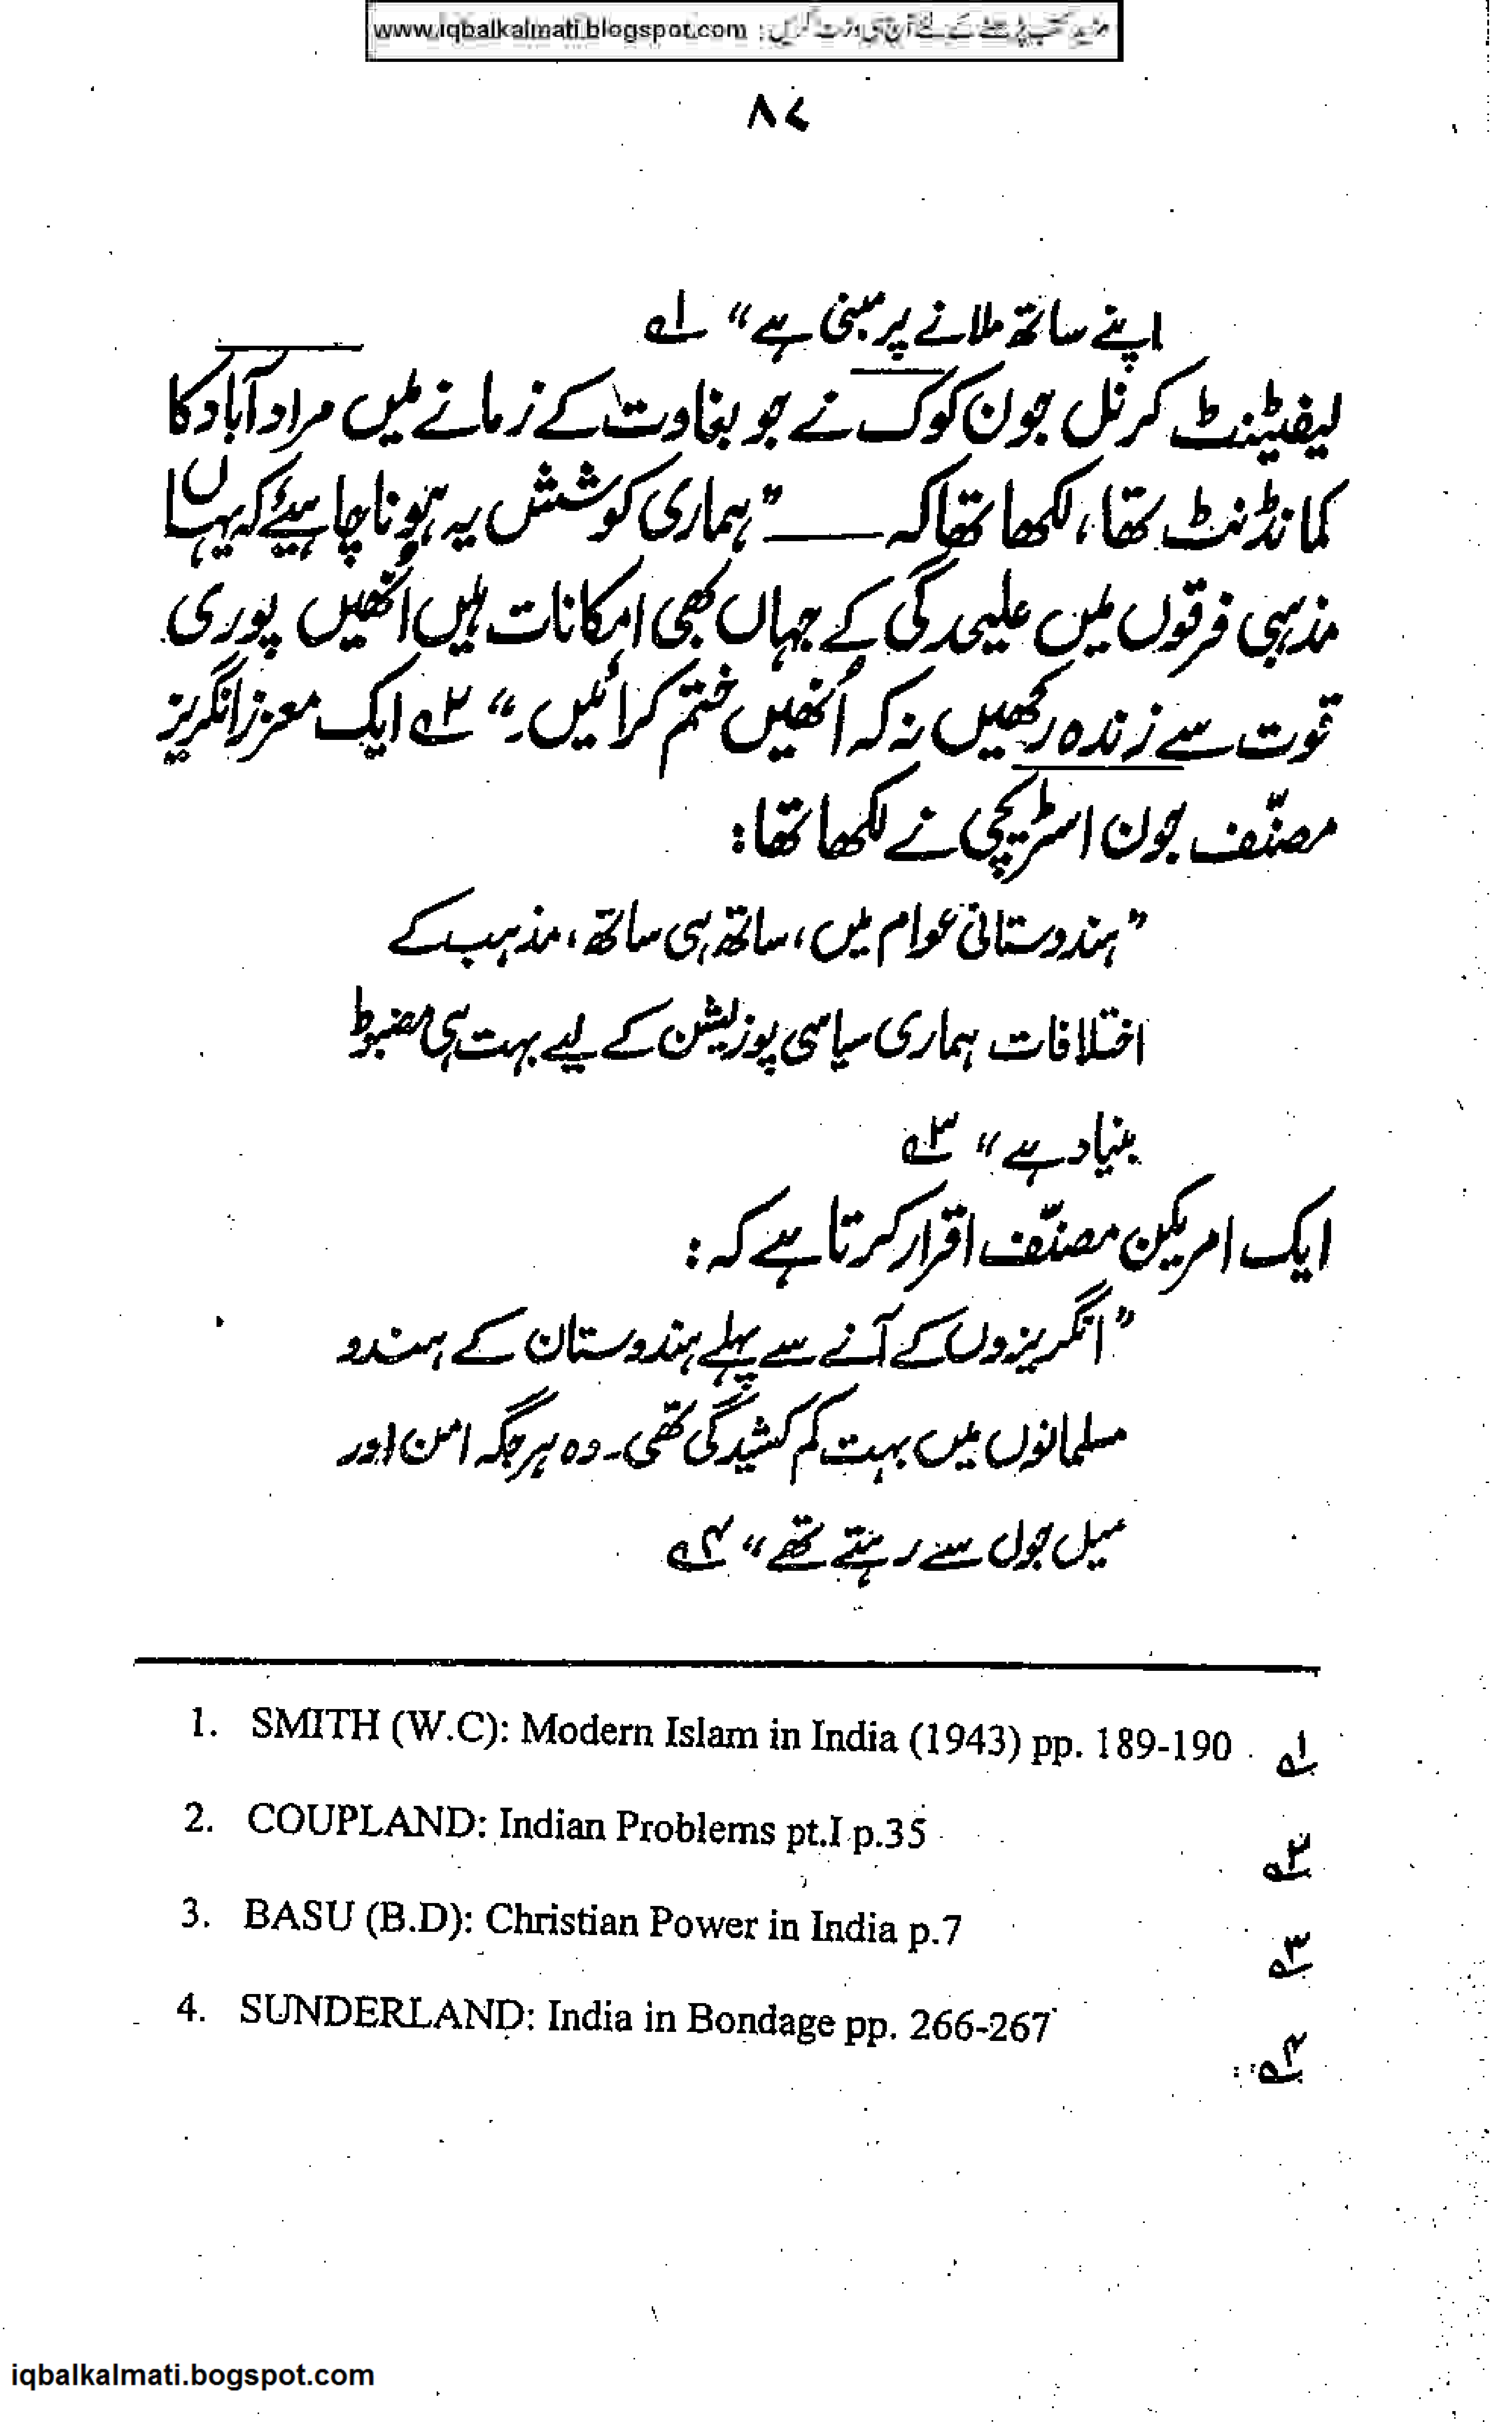 www.iqbalkalmati.blogspot.com : مزید کتب پڑھنے کے لئے آج ہی وزٹ کریں
۸۷
اپنے ساتھ ملانے پر مبنی ہے“ ۱؎
لیفٹیننٹ کرنل جون کوک نے جو بغاوت کے زمانے میں مراد آباد کا
کمانڈنٹ تھا، لکھا تھا کہ — ”ہماری کوشش یہ ہونا چاہیئے کہ یہاں
مذہبی فرقوں میں علیحدگی کے جہاں بھی امکانات ہیں اُنھیں پوری
قوت سے زندہ رکھیں نہ کہ اُنھیں ختم کرائیں۔“ ۲؎ ایک معزز انگریز
مصنّف جون اسٹریچی نے لکھا تھا:
”ہندوستانی عوام میں، ساتھ ہی ساتھ، مذہب کے
اختلافات ہماری سیاسی پوزیشن کے لیے بہت ہی مضبوط
بنیاد ہے“ ۳؎
ایک امریکن مصنّف اقرار کرتا ہے کہ:
”انگریزوں کے آنے سے پہلے ہندوستان کے ہندو
مسلمانوں میں بہت کم کشیدگی تھی۔ وہ ہر جگہ امن اور
میل جول سے رہتے تھے“ ۴؎
1. SMITH (W.C): Modern Islam in India (1943) pp. 189-190 ۱؎
2. COUPLAND: Indian Problems pt.I p.35 ۲؎
3. BASU (B.D): Christian Power in India p.7 ۳؎
4. SUNDERLAND: India in Bondage pp. 266-267 ۴؎
iqbalkalmati.bogspot.com